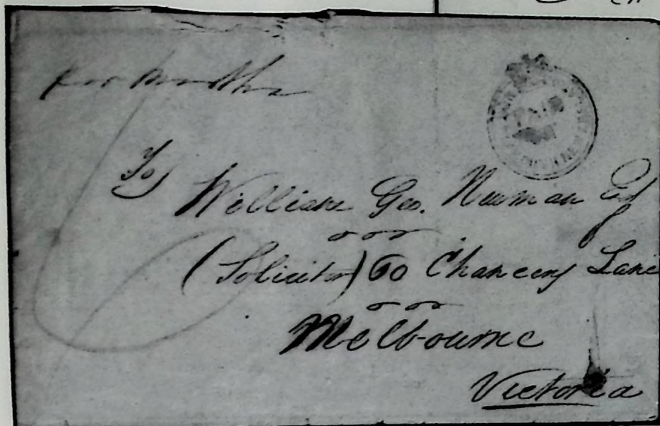 PAID
To
William Geo. Newman Esq
(Solicitor) 60 Chancery Lane
Melbourne
Victoria